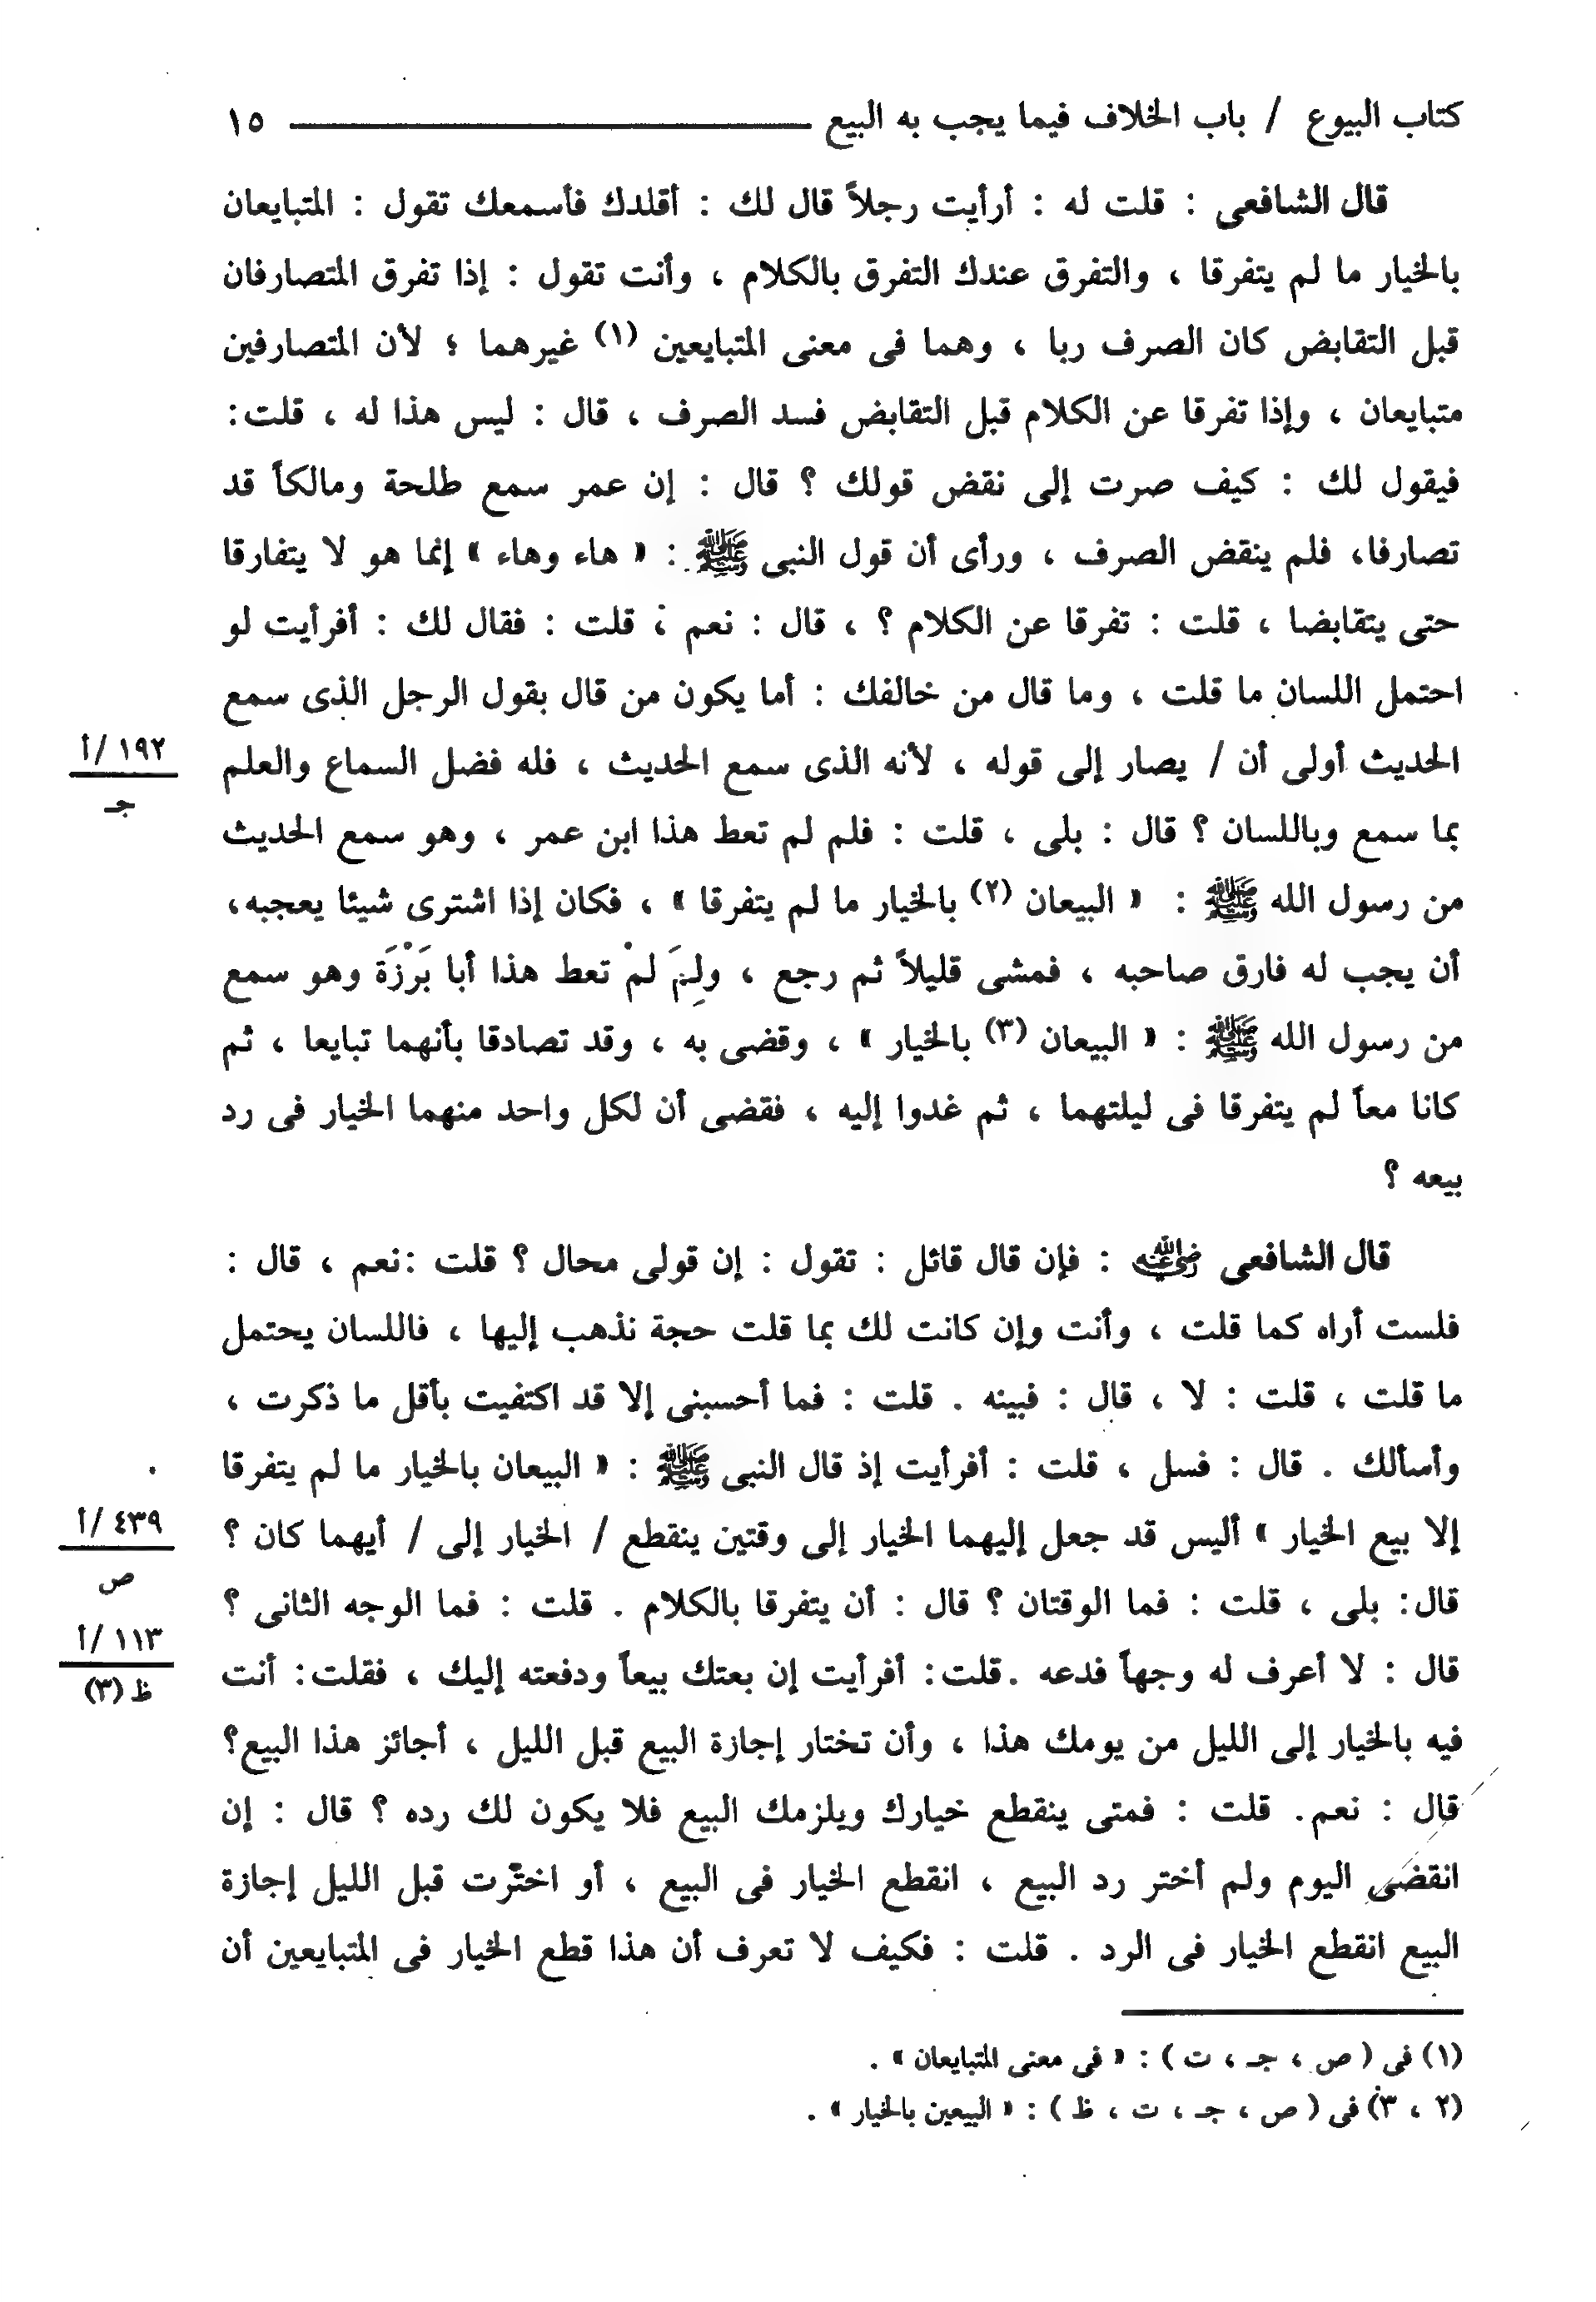 كتاب البيوع / باب الخلاف فيما يجب به البيع ١٥
قال الشافعى : قلت له : أرأيت رجلاً قال لك : أقلدك فأسمعك تقول : المتبايعان
بالخيار ما لم يتفرقا ، والتفرق عندك التفرق بالكلام ، وأنت تقول : إذا تفرق المتصارفان
قبل التقابض كان الصرف ربا ، وهما فى معنى المتبايعين (١) غيرهما ؛ لأن المتصارفين
متبايعان ، وإذا تفرقا عن الكلام قبل التقابض فسد الصرف ، قال : ليس هذا له ، قلت :
فيقول لك : كيف صرت إلى نقض قولك ؟ قال : إن عمر سمع طلحة ومالكاً قد
تصارفا، فلم ينقض الصرف ، ورأى أن قول النبى ﷺ : « هاء وهاء » إنما هو لا يتفارقا
حتى يتقابضا ، قلت : تفرقا عن الكلام ؟ ، قال : نعم ، قلت : فقال لك : أفرأيت لو
احتمل اللسان ما قلت ، وما قال من خالفك : أما يكون من قال بقول الرجل الذى سمع
الحديث أولى أن / يصار إلى قوله ، لأنه الذى سمع الحديث ، فله فضل السماع والعلم
١٩٢ /أ
جـ
بما سمع وباللسان ؟ قال : بلى ، قلت : فلم لم تعط هذا ابن عمر ، وهو سمع الحديث
من رسول الله ﷺ : « البيعان (٢) بالخيار ما لم يتفرقا » ، فكان إذا اشترى شيئا يعجبه،
أن يجب له فارق صاحبه ، فمشى قليلاً ثم رجع ، ولِمَ لمْ تعط هذا أبا بَرْزَة وهو سمع
من رسول الله ﷺ : « البيعان (٣) بالخيار » ، وقضى به ، وقد تصادقا بأنهما تبايعا ، ثم
كانا معاً لم يتفرقا فى ليلتهما ، ثم غدوا إليه ، فقضى أن لكل واحد منهما الخيار فى رد
بيعه ؟
قال الشافعى رضي الله عنه : فإن قال قائل : تقول : إن قولى محال ؟ قلت :نعم ، قال :
فلست أراه كما قلت ، وأنت وإن كانت لك بما قلت حجة نذهب إليها ، فاللسان يحتمل
ما قلت ، قلت : لا ، قال : فبينه . قلت : فما أحسبنى إلا قد اكتفيت بأقل ما ذكرت ،
وأسألك . قال : فسل ، قلت : أفرأيت إذ قال النبى ﷺ : « البيعان بالخيار ما لم يتفرقا
إلا بيع الخيار » أليس قد جعل إليهما الخيار إلى وقتين ينقطع / الخيار إلى / أيهما كان ؟
٤٣٩ /أ
ص
قال: بلى ، قلت : فما الوقتان ؟ قال : أن يتفرقا بالكلام . قلت : فما الوجه الثانى ؟
١١٣ /أ
ظ (٣)
قال : لا أعرف له وجهاً فدعه .قلت: أفرأيت إن بعتك بيعاً ودفعته إليك ، فقلت: أنت
فيه بالخيار إلى الليل من يومك هذا ، وأن تختار إجازة البيع قبل الليل ، أجائز هذا البيع؟
قال : نعم. قلت : فمتى ينقطع خيارك ويلزمك البيع فلا يكون لك رده ؟ قال : إن
انقضى اليوم ولم أختر رد البيع ، انقطع الخيار فى البيع ، أو اخترت قبل الليل إجازة
البيع انقطع الخيار فى الرد . قلت : فكيف لا تعرف أن هذا قطع الخيار فى المتبايعين أن
(١) فى ( ص ، جـ ، ت ) : « فى معنى المتبايعان » .
(٢ ، ٣) فى ( ص ، جـ ، ت ، ظ ) : « البيعين بالخيار » .